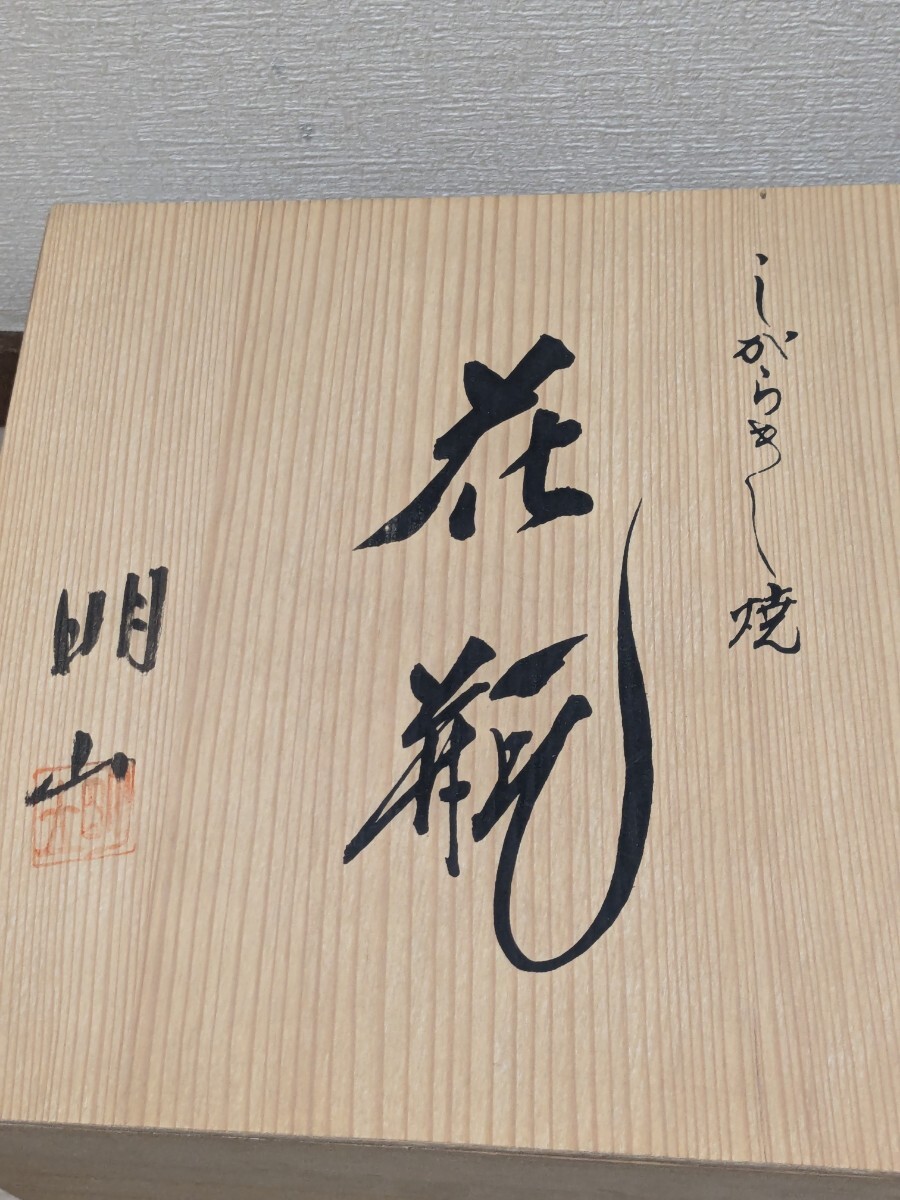 しがらき焼
花瓶
明山